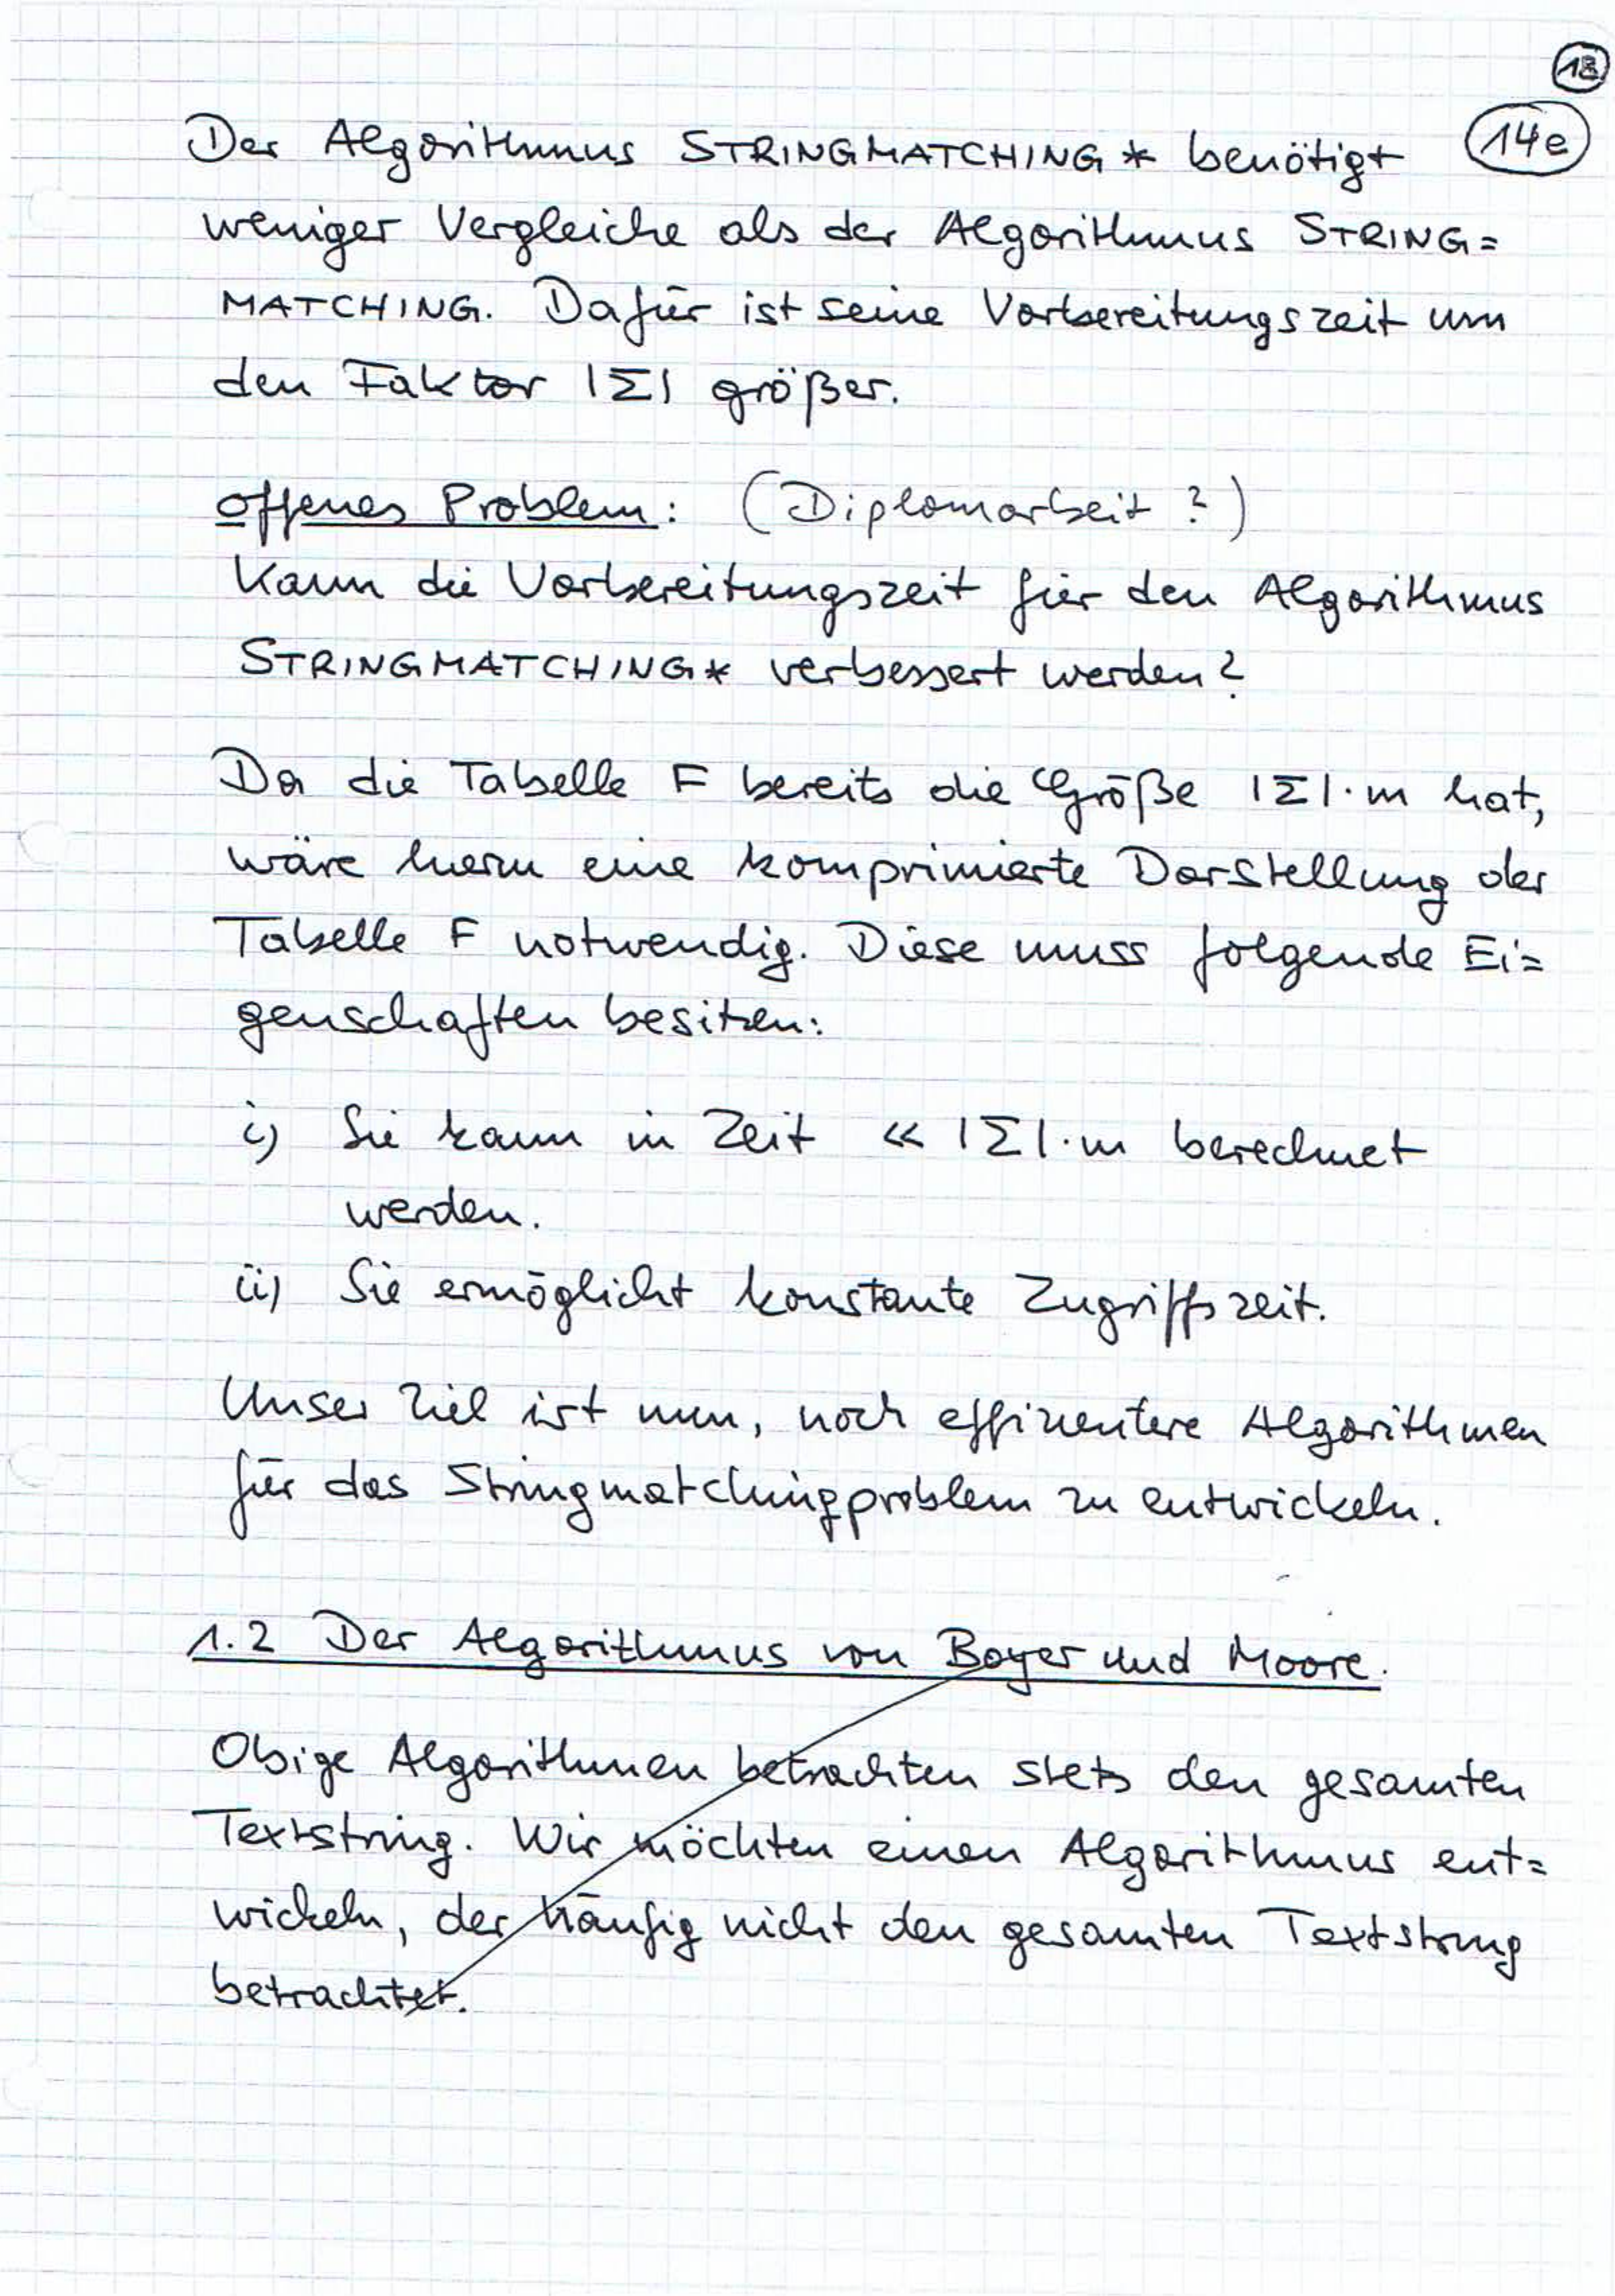 18
14e
Der Algorithmus STRINGMATCHING* benötigt
weniger Vergleiche als der Algorithmus STRING=
MATCHING. Dafür ist seine Vorbereitungszeit um
den Faktor |Σ| größer.
offenes Problem: (Diplomarbeit?)
Kann die Vorbereitungszeit für den Algorithmus
STRINGMATCHING* verbessert werden?
Da die Tabelle F bereits die Größe |Σ|·m hat,
wäre hierin eine komprimierte Darstellung der
Tabelle F notwendig. Diese muss folgende Ei=
genschaften besitzen:
i) Sie kann in Zeit << |Σ|·m berechnet
werden.
ii) Sie ermöglicht konstante Zugriffszeit.
Unser Ziel ist nun, noch effizientere Algorithmen
für das Stringmatchingproblem zu entwickeln.
1.2 Der Algorithmus von Boyer und Moore.
Obige Algorithmen betrachten stets den gesamten
Textstring. Wir möchten einen Algorithmus ent=
wickeln, der häufig nicht den gesamten Textstring
betrachtet.